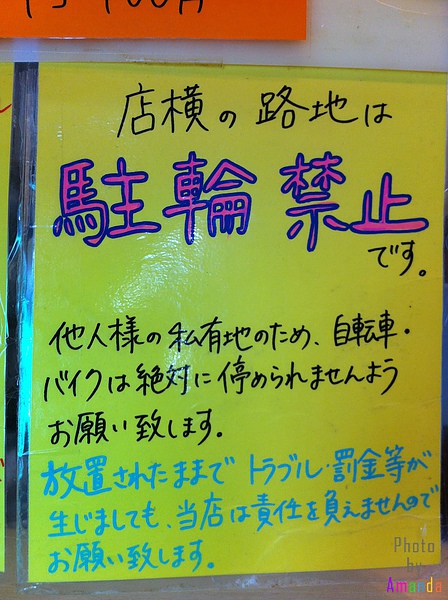 店横の路地は
駐輪禁止
です。
他人様の私有地のため、自転車・
バイクは絶対に停められませんよう
お願い致します。
放置されたままで トラブル・罰金等が
生じましても、当店は責任を負えませんので
お願い致します。
Photo
by
Amanda